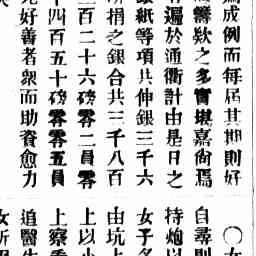 爲成例而每屆其期則好
籌欵之多實堪嘉尙焉
遍於通衢計由是日之
銀紙等項共伸銀三千六
所捐之銀合共三千八百
三百二十六磅零二員零
十四百五十磅零零五員
好善者衆而助資愈力
〇女
自尋則
持炮以
女子多
由坑上
上以小
上察
追醫生
女所